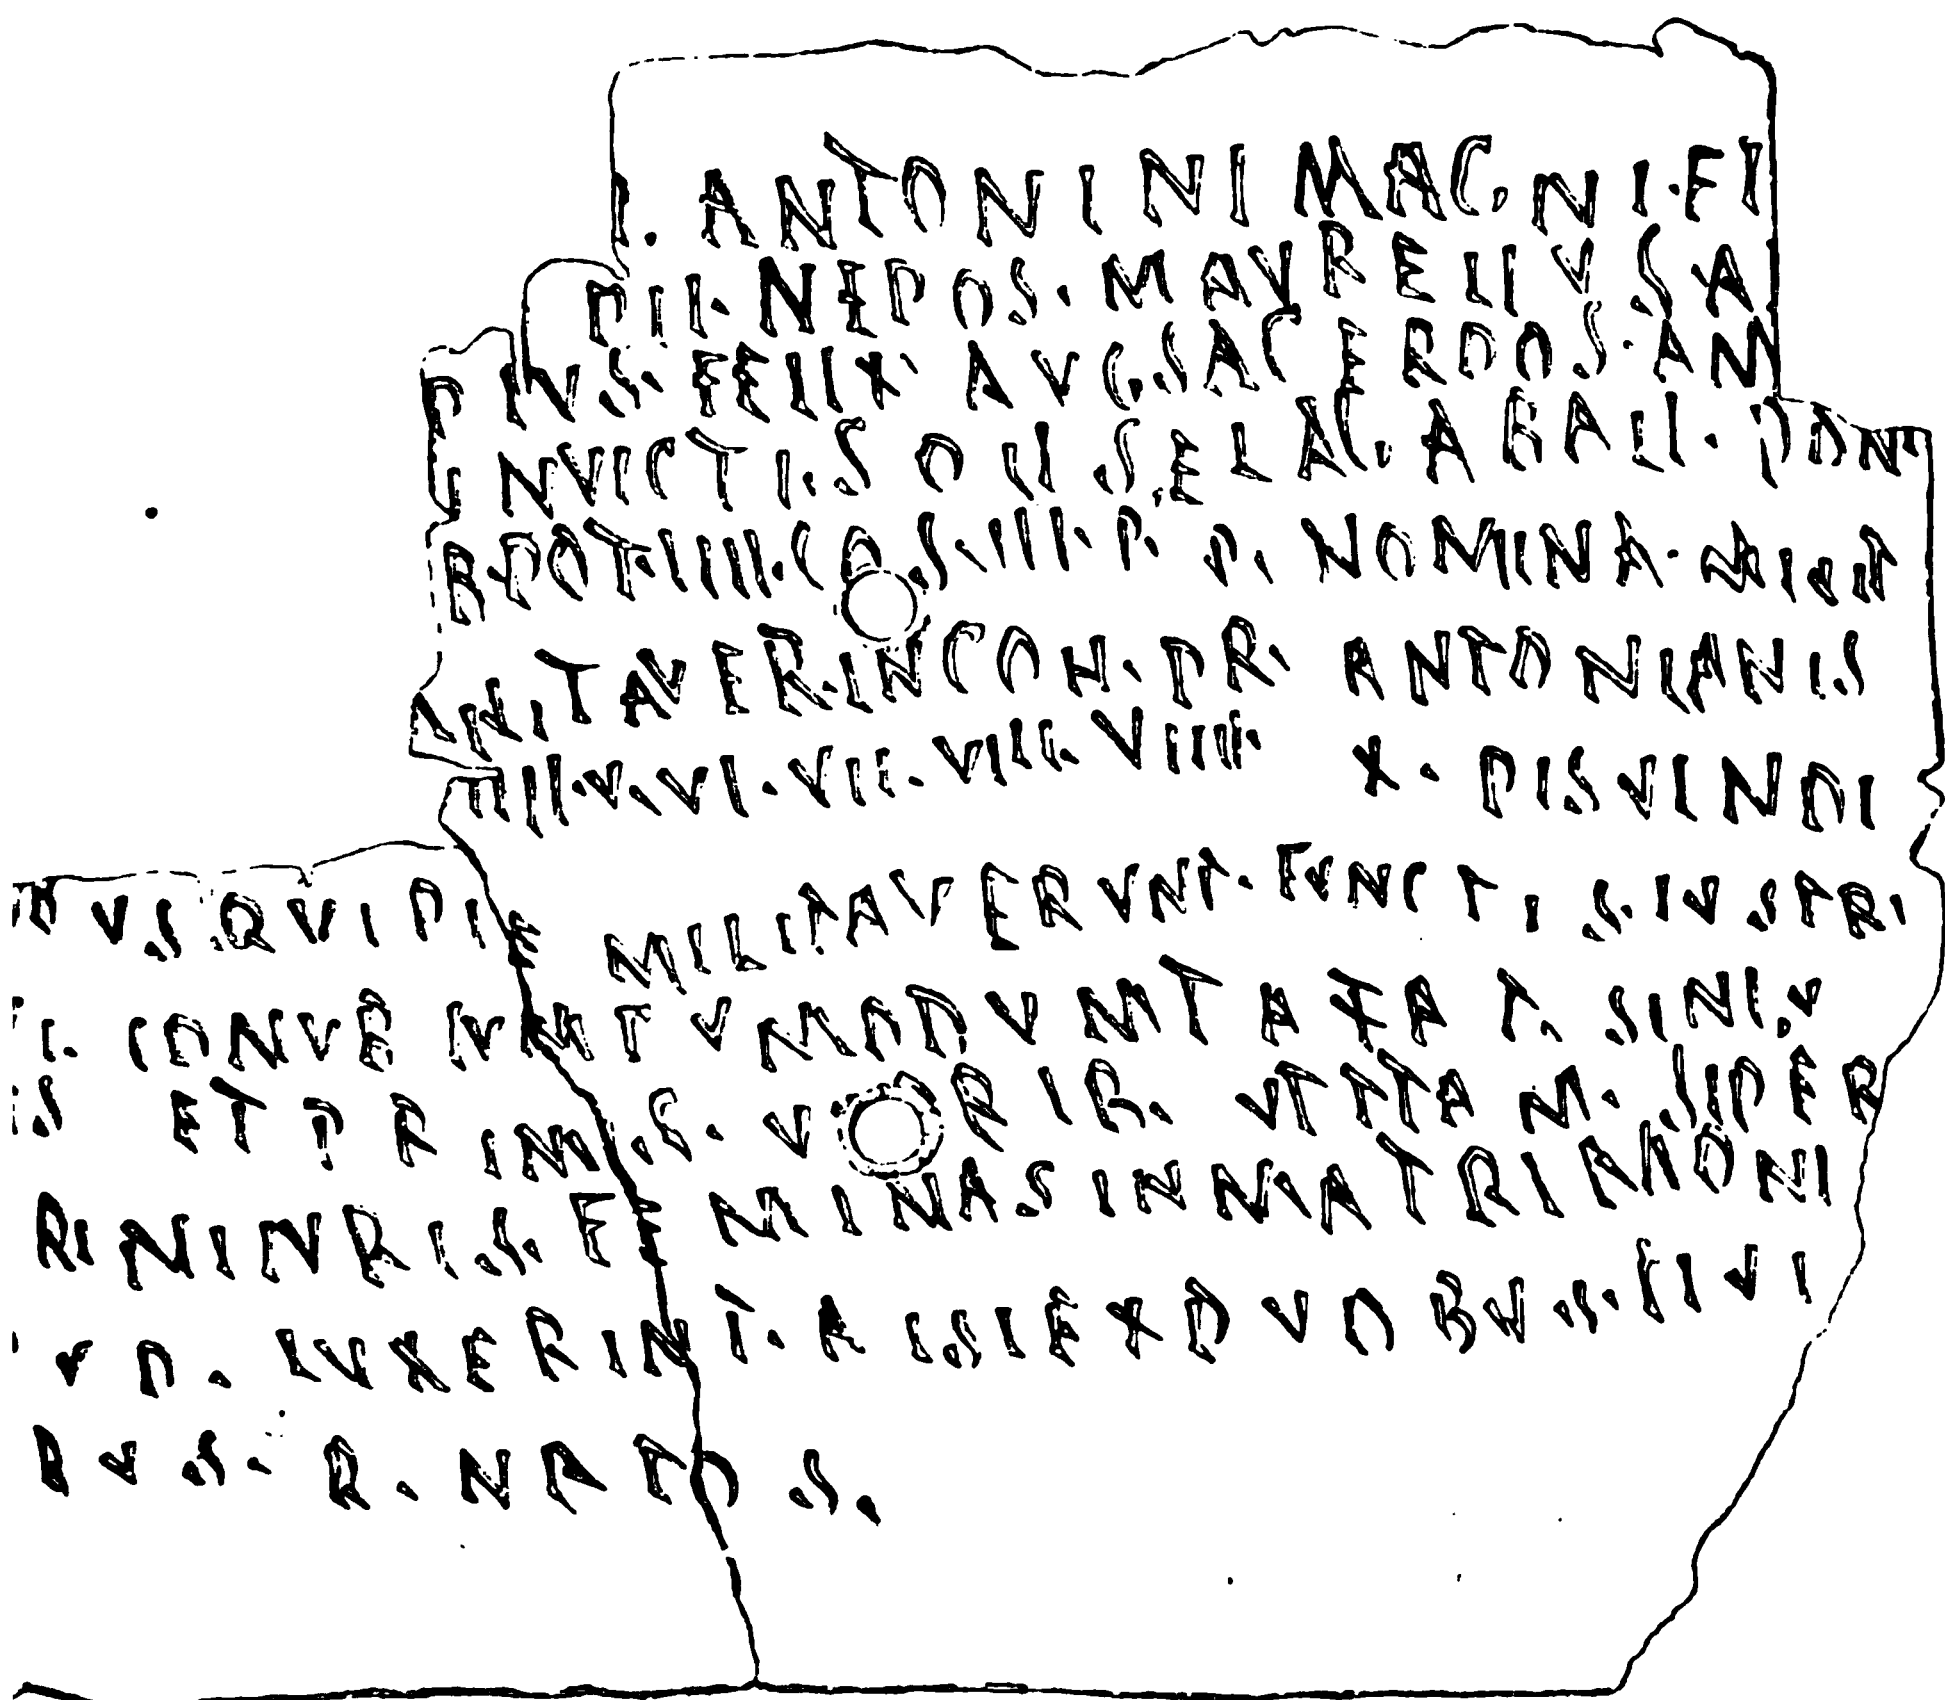 I. ANTONINI MAG. NI. FI
PII. NEPOS. M AVREIIVS A
PIVS. FEIIX. AVG. SACERDOS. AM
INVICTI. SOII. SELAG. ABALI. PON
R. POT. IIII. COS. III. P. P. NOMINA. MILIT
MILITAVER. IN COH. PR. ANTONIANIS
IIII. V. VI. VII. VIII. VIIII. X. PISVINDI
VS QVI PIE MILITAVERVNT. FVNCTI. S. IVS TRI
I. CONVENVNT VM DD VMTAXAT. SINI. V
IS ET PRIMIS. VXORIB. VT TTAM. SI PER
RINI NRIS. FEMINAS IN MATRIMONI
VO. IVXERINT. A ISI EX DVOBVS. CIVI
BVS. R. NATOS.